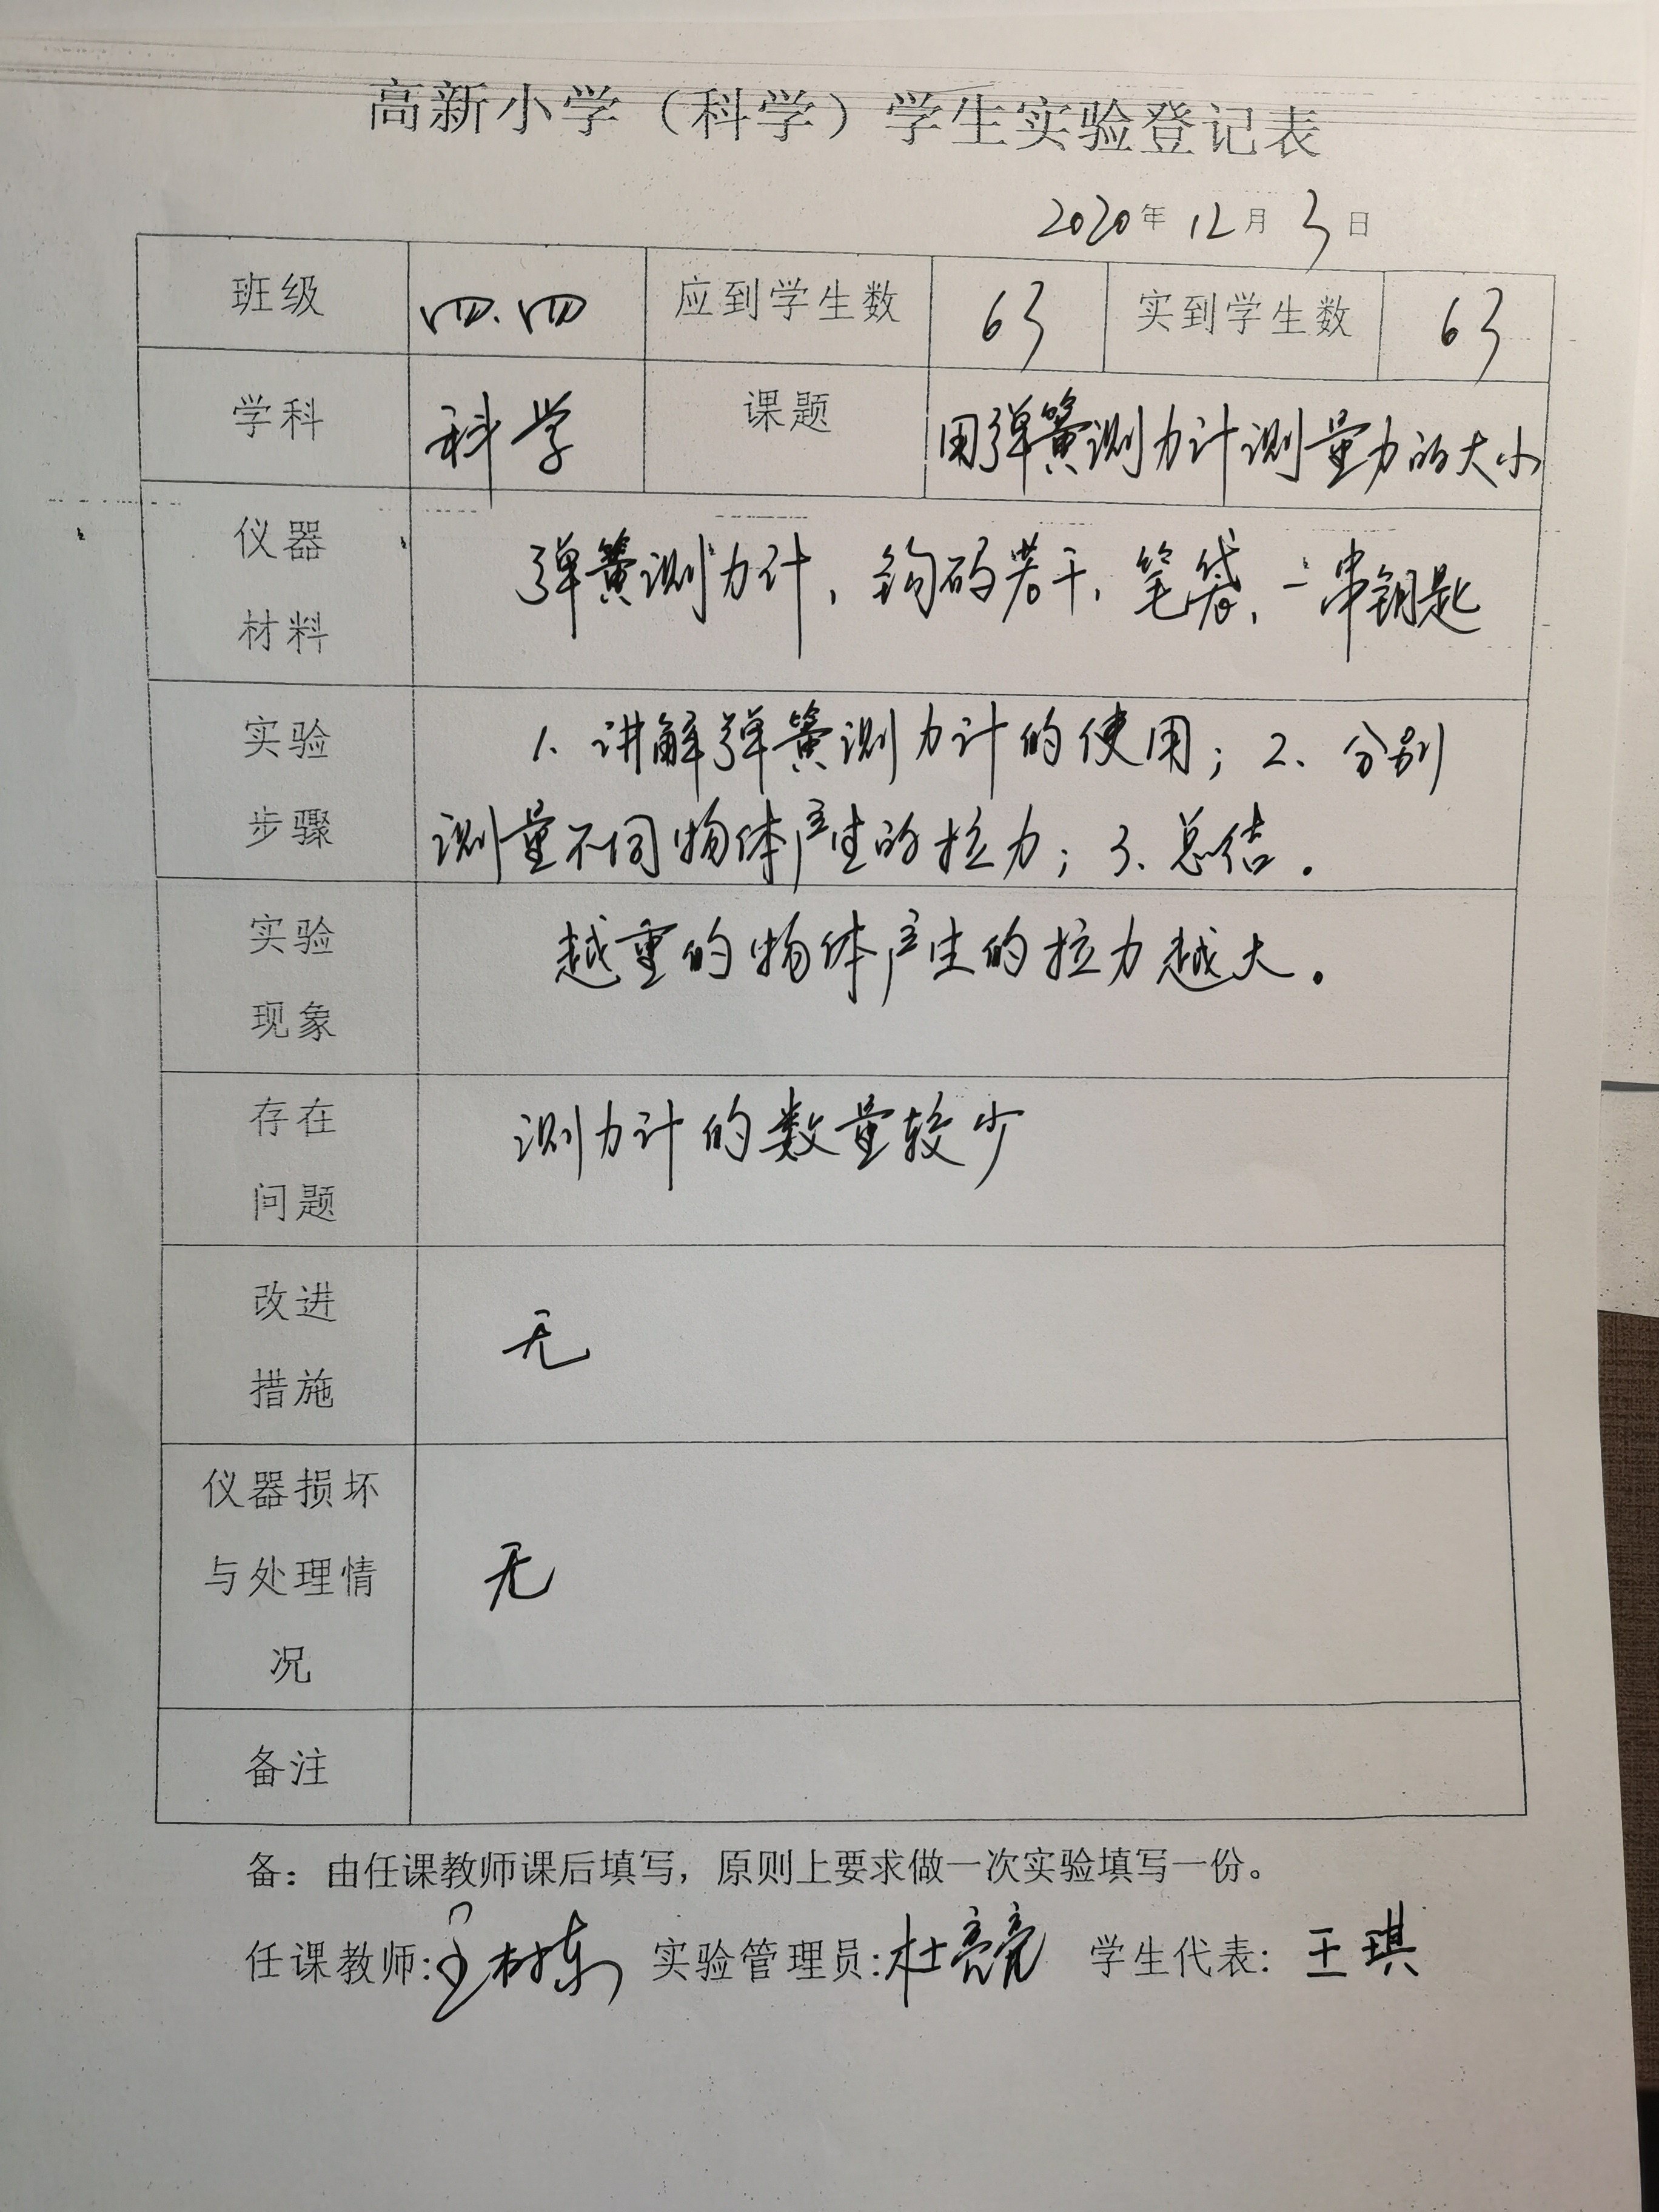 高新小学（科学）学生实验登记表
2020年12月3日
班级 四.四 应到学生数 63 实到学生数 63
学科 科学 课题 用弹簧测力计测量力的大小
仪器
材料
弹簧测力计，钩码若干，笔袋，一串钥匙
实验
步骤
1、讲解弹簧测力计的使用；2、分别
测量不同物体产生的拉力；3、总结．
实验
现象
越重的物体产生的拉力越大．
存在
问题
测力计的数量较少
改进
措施
无
仪器损坏
与处理情
况
无
备注
备：由任课教师课后填写，原则上要求做一次实验填写一份。
任课教师:王树东 实验管理员:杜亮亮 学生代表: 王琪